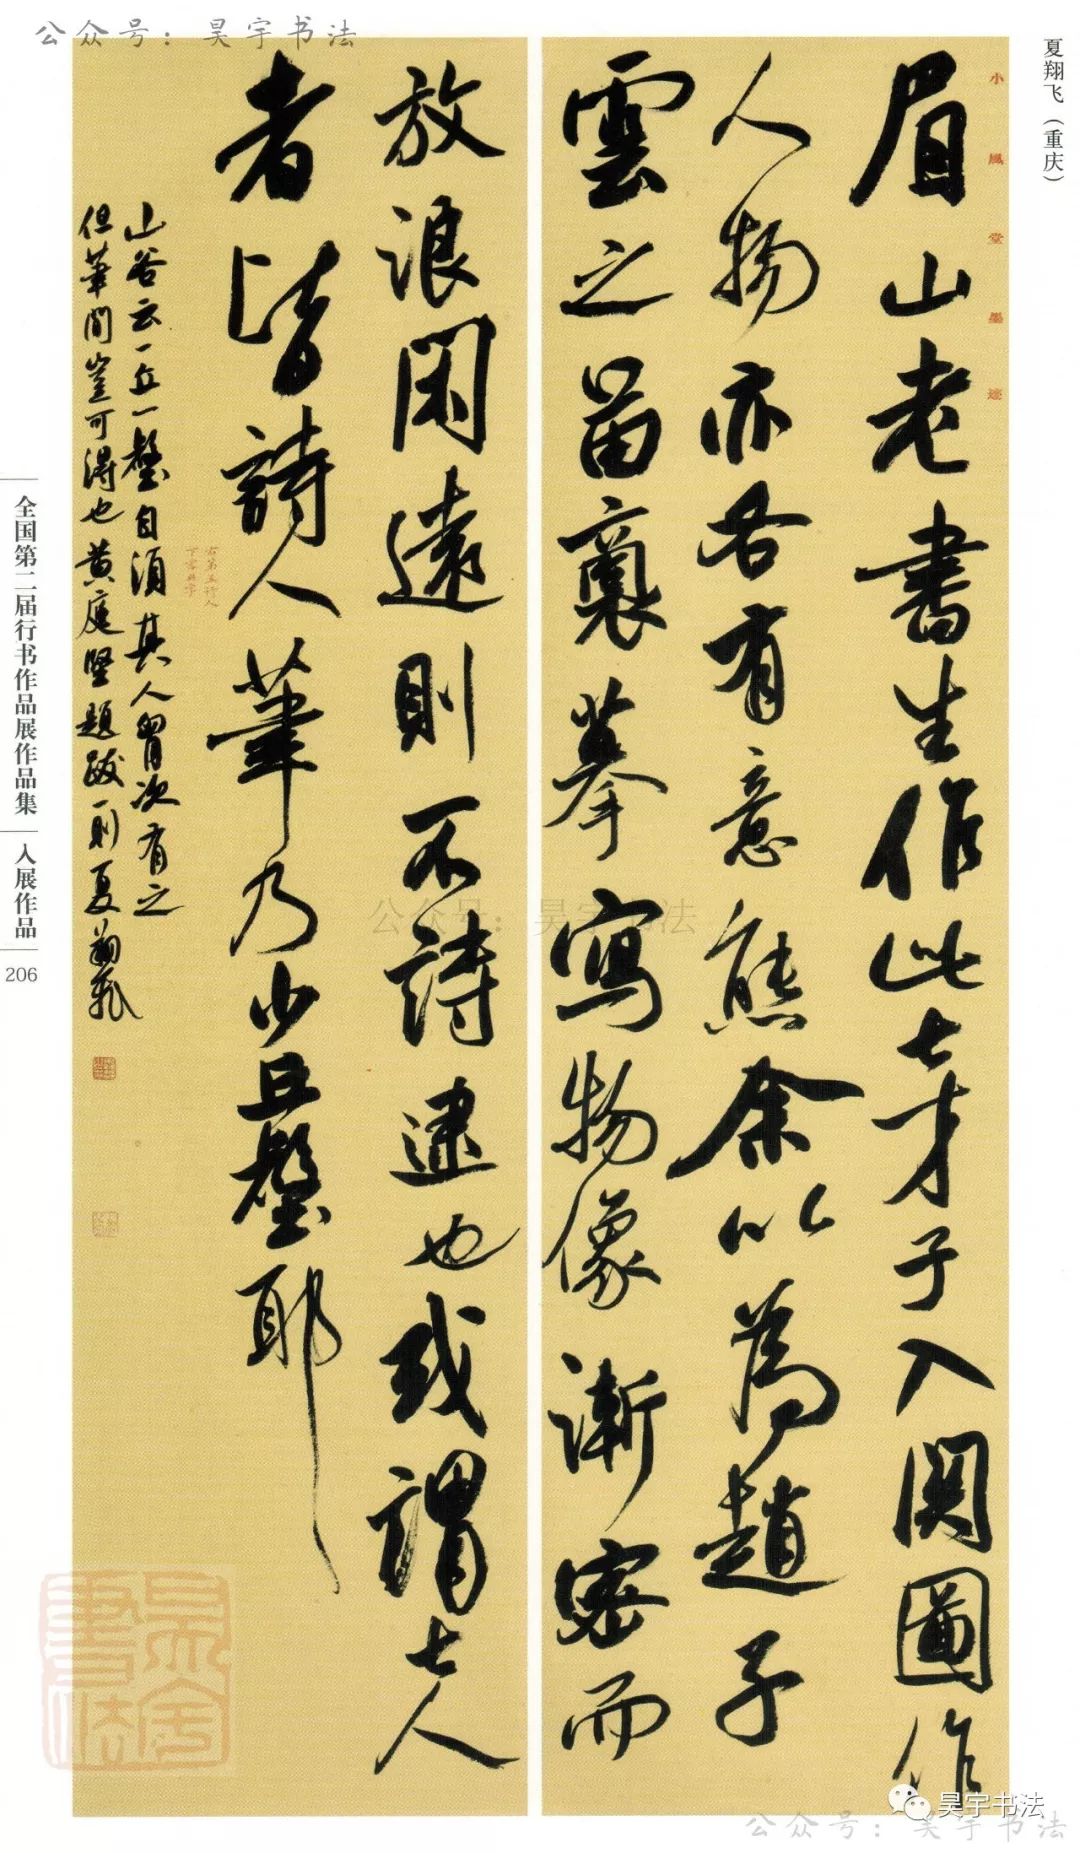 公众号：昊宇书法
夏翔飞（重庆）
小風堂墨迹
眉山老書生作此七才子入関圖作
人物亦各有意態余以為趙子
雲之苗裔摹寫物像漸密而
放浪閑遠則不詩逮也或謂七人
者皆詩人筆乃少丘壑耶
右第五行人
下
山谷云一丘一壑自須其人胷次有之
但筆間豈可得也黄庭堅題跋一則夏翔飛
全国第二届行书作品展作品集
入展作品
206
公众号：昊宇书法
昊宇書法
昊宇书法
公众号：昊宇书法